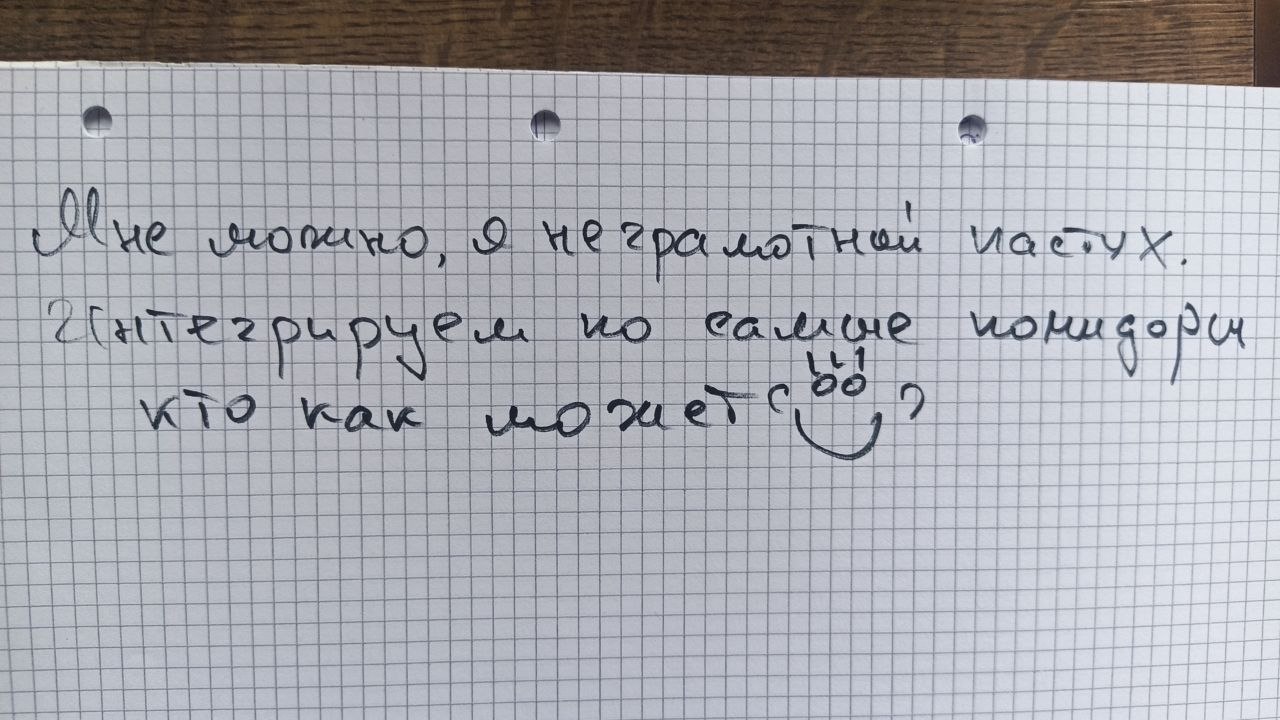 Мне можно, я неграмотной пастух.
Интегрируем по самые помидоры
кто как может